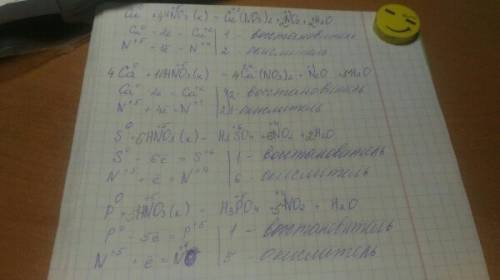 Cu⁰ + 4HN⁺⁵O₃(к) = Cu⁺²(NO₃)₂ + 2N⁺⁴O₂ + 2H₂O
Cu⁰ - 2e = Cu⁺² | 1 - восстановитель
N⁺⁵ + e = N⁺⁴ | 2 - окислитель
4Ca⁰ + 10HN⁺⁵O₃(к) = 4Ca⁺²(NO₃)₂ + N₂O + 5H₂O
Ca⁰ - 2e = Ca⁺² | 2 - восстановитель
N⁺⁵ + 4e = N⁺¹ | окислитель
S⁰ + 6HN⁺⁵O₃(к) = H₂S⁺⁶O₄ + 6N⁺⁴O₂ + 2H₂O
S⁰ - 6e = S⁺⁶ | 1 - восстановитель
N⁺⁵ + e = N⁺⁴ | 6 - окислитель
P⁰ + 5HN⁺⁵O₃(к) = H₃P⁺⁵O₄ + 5N⁺⁴O₂ + H₂O
P⁰ - 5e = P⁺⁵ | 1 - восстановитель
N⁺⁵ + e = N | 5 - окислитель